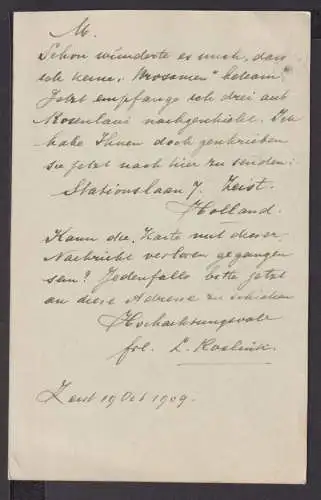 M.
Schon wünderte es mich, dass
ich keine "Brosamen" bekam.
Jetzt empfange ich drei aus
Rosenlaui nachgeschickt. Ich
habe Ihnen doch geschrieben
sie jetzt nach hier zu senden:
Stationslaan 7. Zeist.
Holland.
Kann die Karte mit dieser
Nachricht verloren gegangen
sein? Jedenfalls bitte jetzt
an diese Adresse zu schicken
Hochachtungsvoll
frl. L.
Zeist 19 Oct 1909.